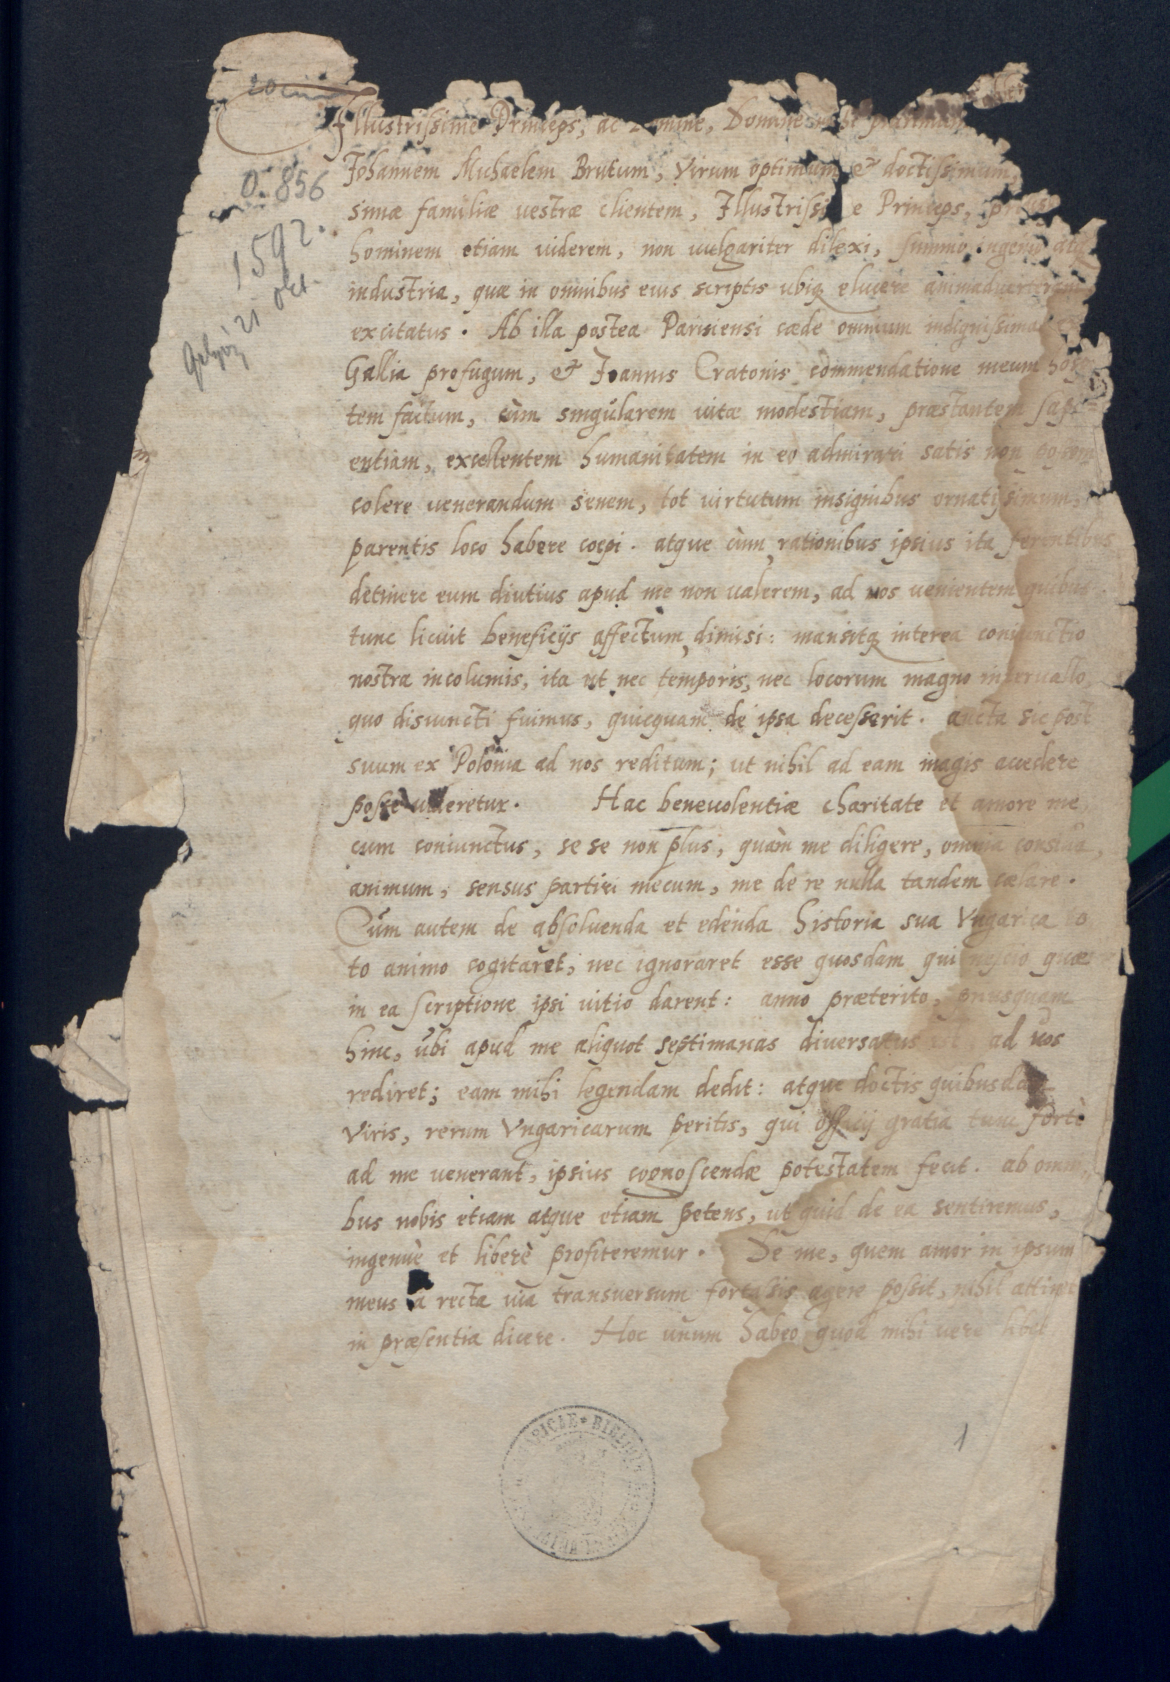 Illustrissime Princeps, ac Domine, Domine
Johannem Michaelem Brutum, Virum optimum & doctissimum,
simæ familiæ vestræ clientem, Illustrissi e Princeps,
hominem etiam viderem, non vulgariter dilexi, summo ingenio
industria, quæ in omnibus eius scriptis ubiq elucere
excitatus. Ab illa postea Parisiensi cæde omnium indignissima
Gallia profugum, & Joannis Cratonis commendatione meum hos
tem factum, cùm singularem vitæ modestiam, præstantem sapi
entiam, excellentem humanitatem in eo admirari satis non
colere venerandum senem, tot virtutum insignibus ornatissimum,
parentis loco habere coepi. atque cùm rationibus ipsius ita ferentibus
detinere eum diutius apud me non valerem, ad vos venientem quibus
tunc licuit beneficijs affectum dimisi: mansitq interea coniunctio
nostra incolumis, ita ut nec temporis, nec locorum magno intervallo,
quo disiuncti fuimus, quicquam de ipsa decesserit. aucta sic post
suum ex Polonia ad nos reditum; ut nihil ad eam magis accedere
posse videretur. Hac benevolentiæ charitate et amore me
cum coniunctus, se se non plus, quàm me diligere, omnia consilia,
animum, sensus partiri mecum, me de re nulla tandem cælare.
Cùm autem de absoluenda et edenda historia sua Vngarica to
to animo cogitaret; nec ignoraret esse quosdam qui nescio quæ
in ea scriptione ipsi vitio darent: anno præterito, priusquam
hinc, ubi apud me aliquot septimanas diversatus est ad vos
rediret; eam mihi legendam dedit: atque doctis quibusdam
Viris, rerum Vngaricarum peritis, qui officij gratia tunc fortè
ad me venerant, ipsius cognoscendæ potestatem fecit. ab omni
bus nobis etiam atque etiam petens, ut quid de ea sentiremus,
ingenuè et liberè profiteremur. De me, quem amor in ipsum
meus a recta via transversum fortassis agere possit, nihil attinet
in præsentia dicere. Hoc unum habeo, quod mihi vere
0.856
1592.
21 okt.
1